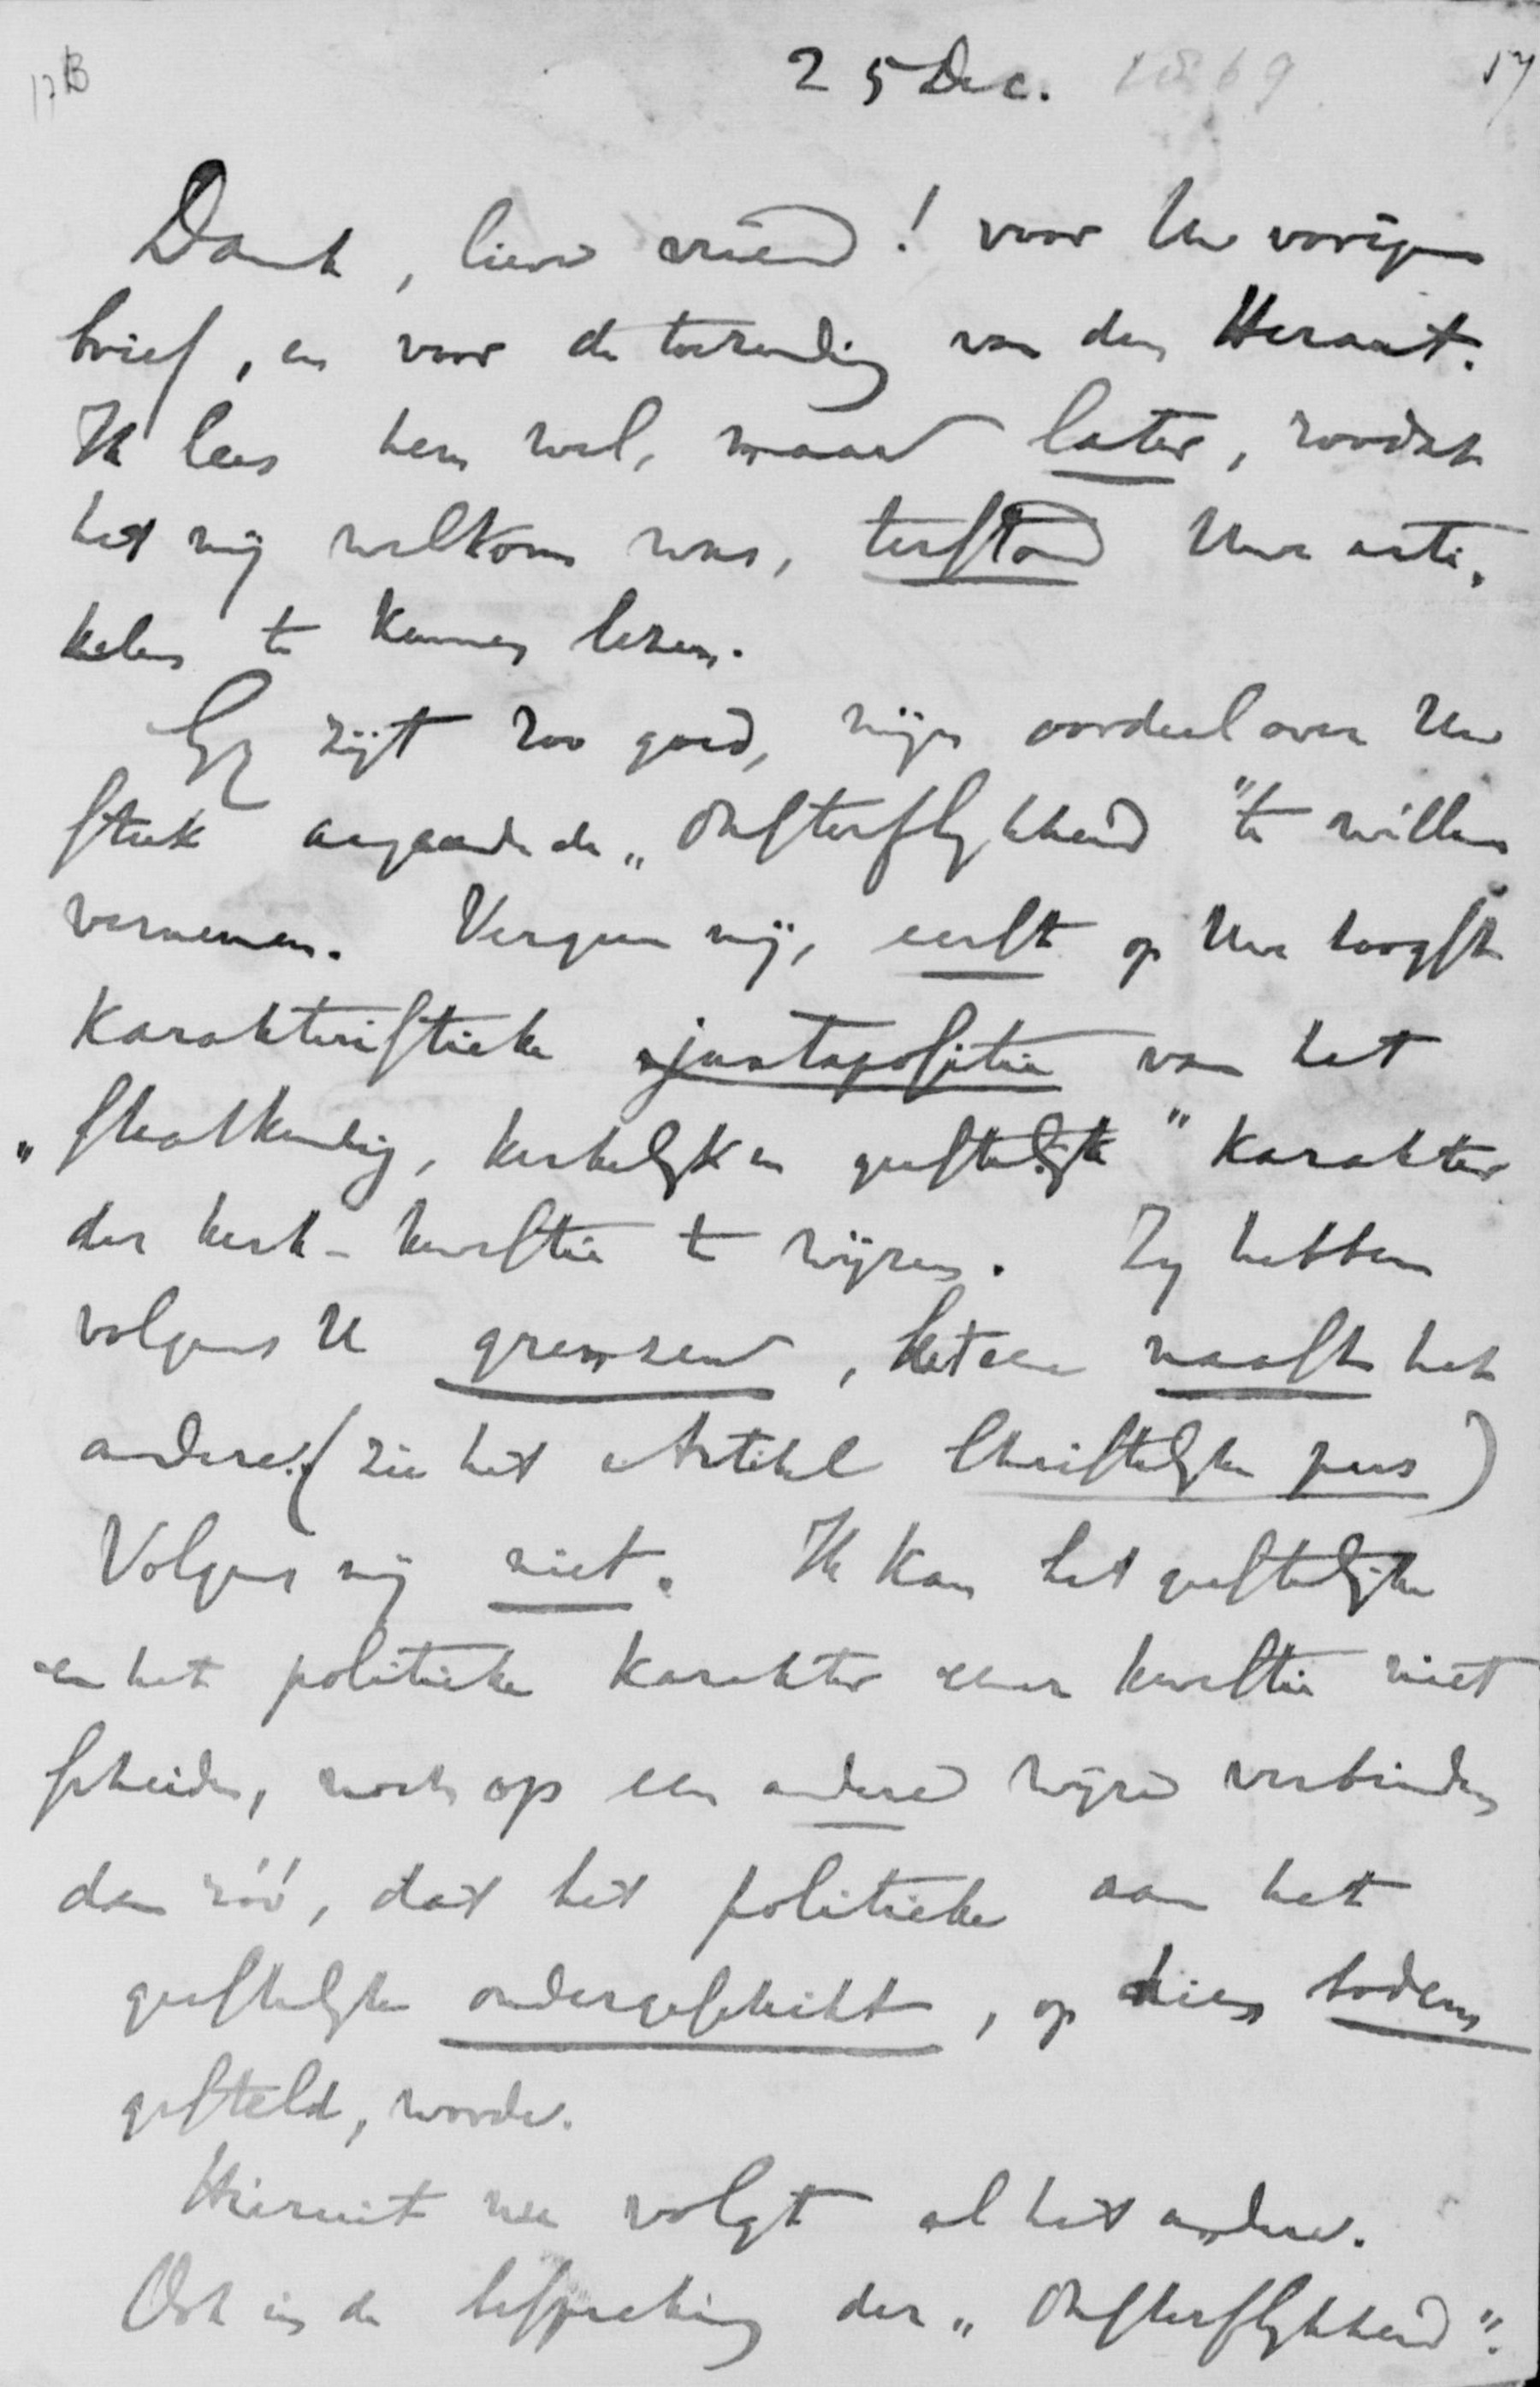 17B 25 Dec. 1869 17
Dank, lieve vriend! voor Uw vorigen
brief, en voor de toezending van den Heraut.
Ik lees hem wel, maar later, zoodat
het mij welkom was, terstond Uwe arti-
kelen te kunnen lezen.
Gy zijt zoo goed, mijn oordeel over Uw
stuk aangaande de „Onsterflykheid" te willen
vernemen. Vergun mij, eerst op Uwe hoogst
karakteristieke juxtapositie van het
„staatkundig, kerkelyk en geestelijk" karakter
der kerk-kwestie te wijzen. Zy hebben
volgens U grenzen, het eene naast het
andere. (zie het Artikel Christelyke pers)
Volgens mij niet. Ik kan het geestelijke
en het politieke karakter eener kwestie niet
scheiden, noch op een andere wijze verbinden
dan zóó, dat het politieke aan het
geestelyke ondergeschikt, op dien bodem
gesteld, worde.
Hieruit nu volgt al het andere.
Ook in de bespreking der „Onsterflykheid".